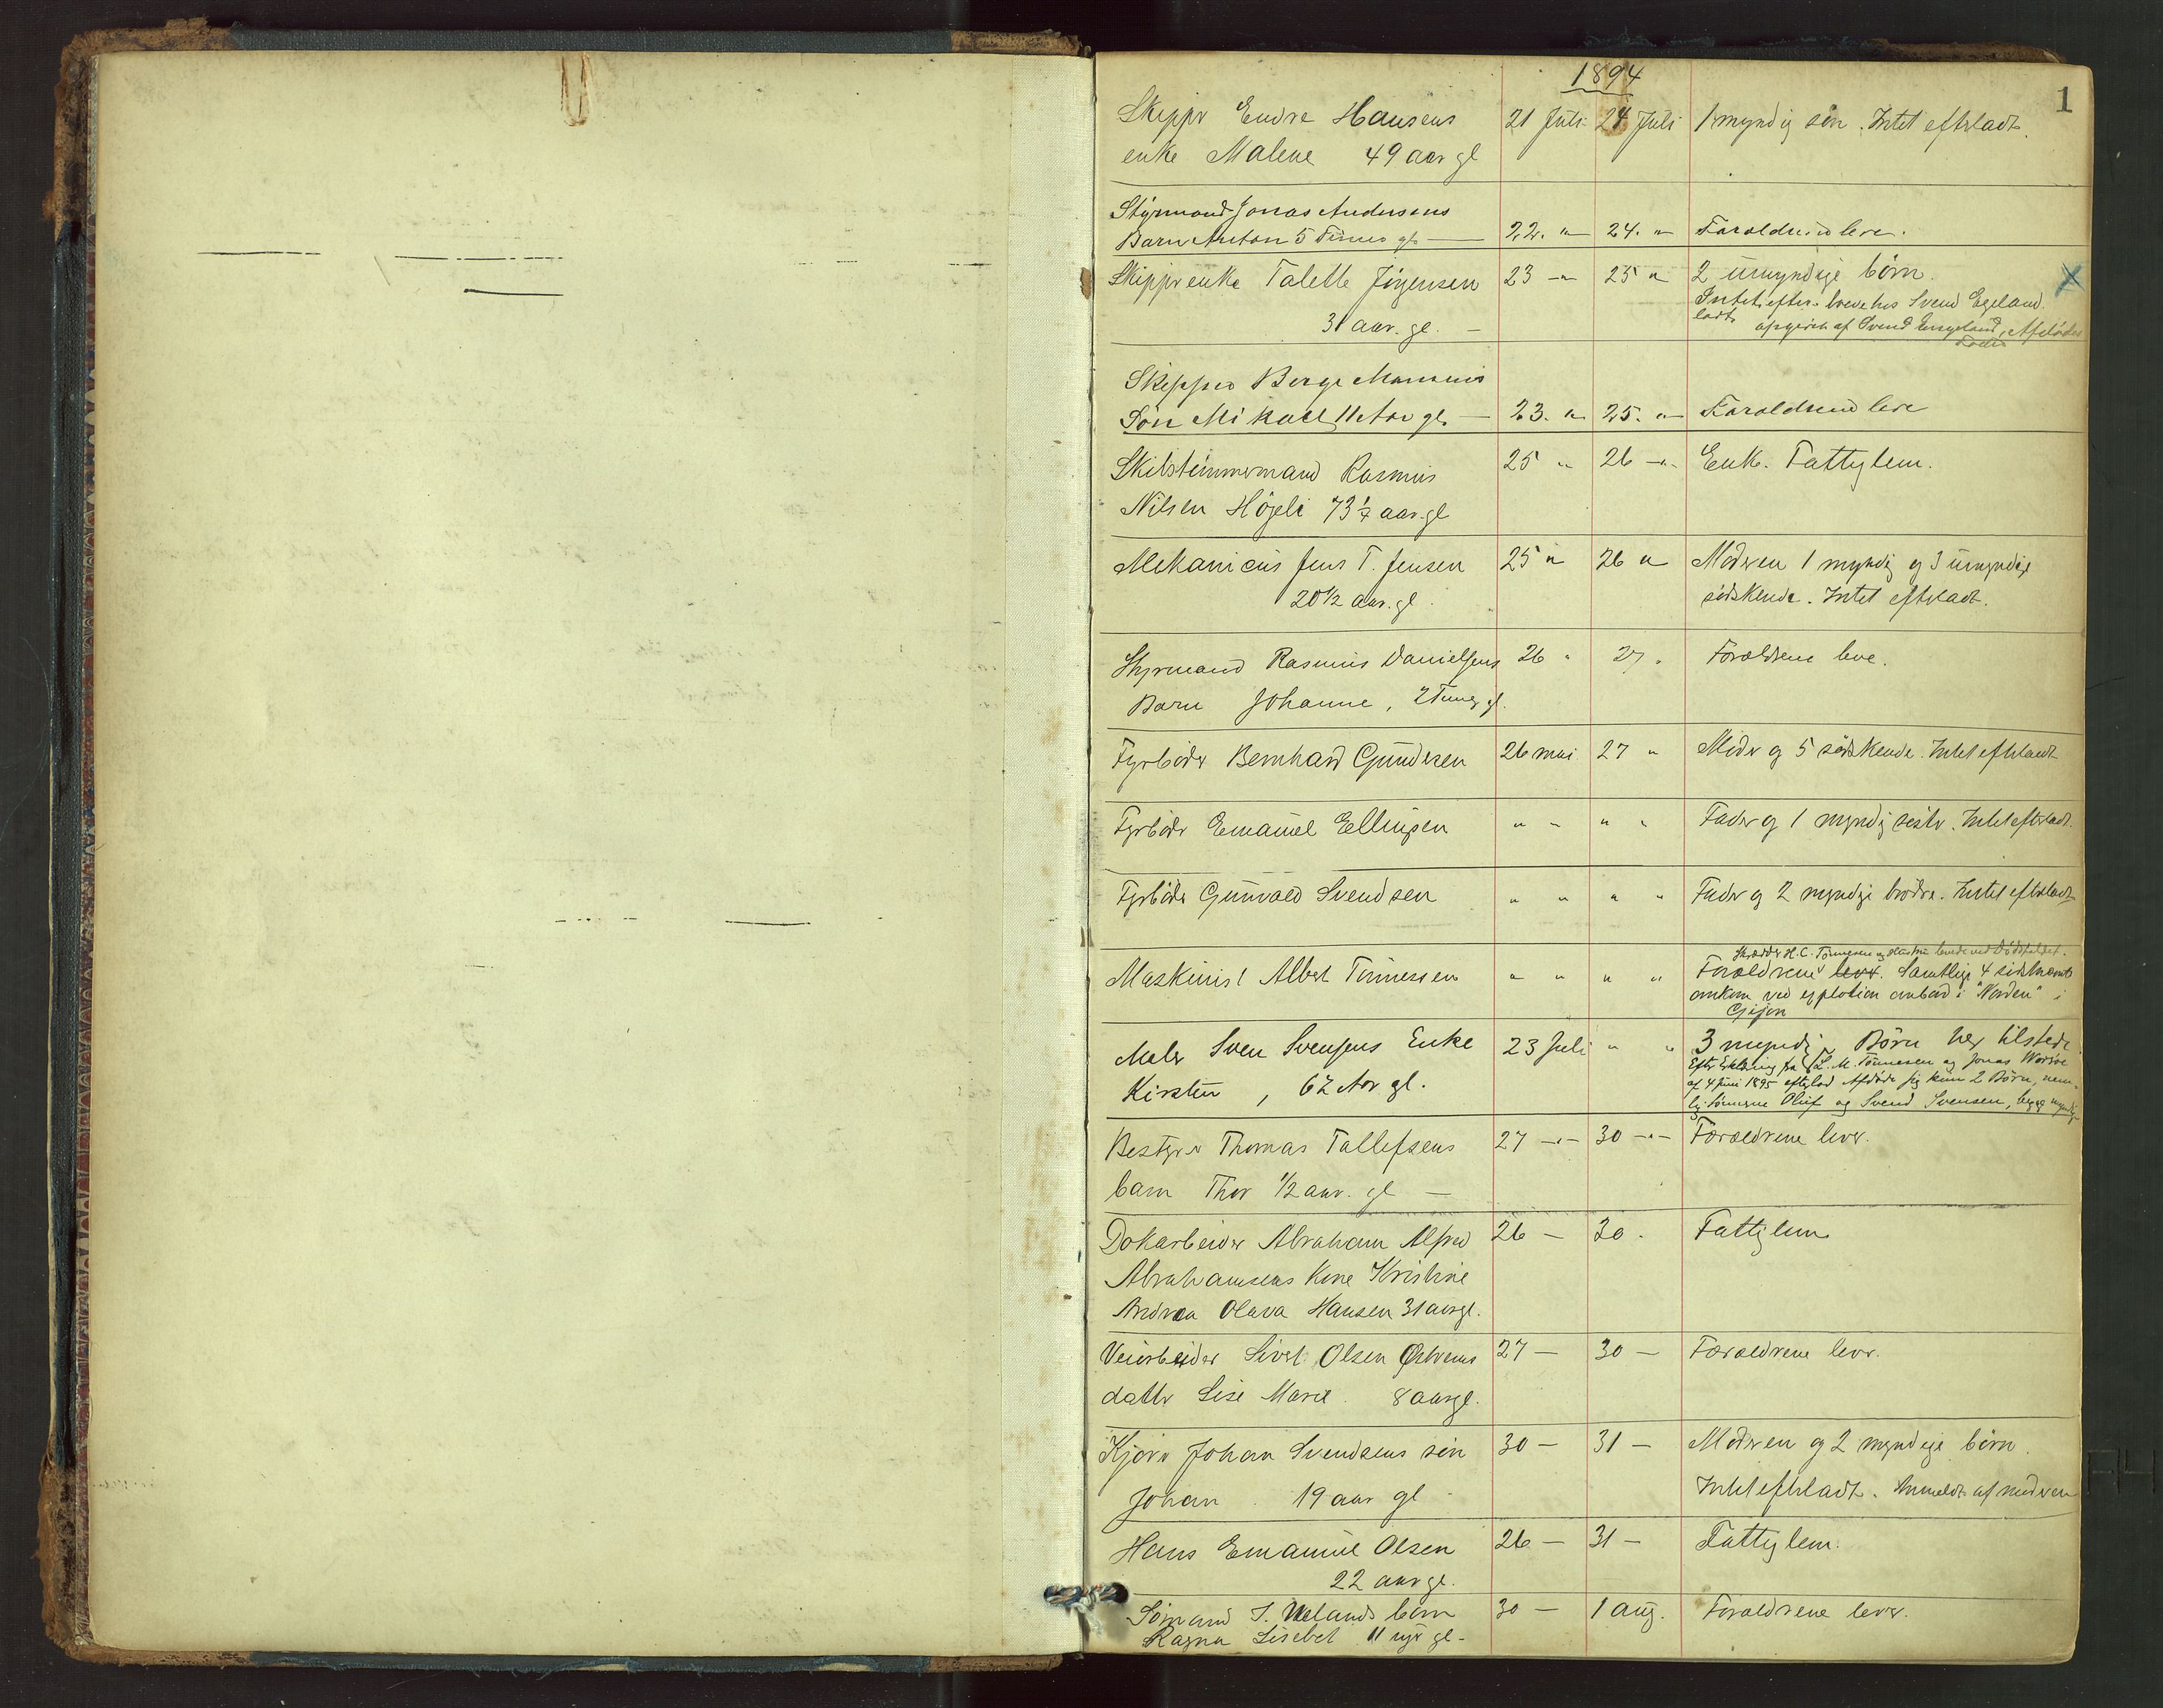 1894
1
Skippr Endre Hansens 21 Juli 24 Juli 1 myndig søn. Intet eftrladt.
enke Malene 49 aar gl
Styrmand Jonas Andersens
Barn Anton 5 Timer gl. — 22. " 24. " Forældrene leve.
Skippr enke Talette Jørgensen 23 — " 25 " 2 umyndige børn. X
31 aar. gl. — Intet efter- hos Svend Egeland.
ladt af Svend Afdødes
Fader
Skipper Berge
Søn Mikael 11 Aar gl. — 23. " 25. " Forældrene leve
Skibstømmermand Rasmus 25 " 26 — " Enke. Fattiglem.
Nilsen 73 ¼ aar. gl
Mekanicus Jens T. Jensen 25 " 26 " Moderen 1 myndig og 3 umyndige
20 1/2 aar. gl. sødskende. Intet eftrladt.
Styrmand Rasmus Danielsens 26 " 27 " Forældrene leve.
Barn Johanne, 2 Timer gl.
Fyrbøder Bernhard Gundersen 26 mai 27 " Moder og 5 sødskende. Intet eftrladt
Fyrbødr Emanuel Ellingsen " " " " Fader og 1 myndig søster. Intet eftrladt.
Fyrbødr Gunvald Svendsen " " " " Fader og 2 myndige brødre. Intet eftrladt
Skrædder H. C. Tønnesen og Hustru levede ved Dødsfaldet.
Maskinist Albert Tønnessen " " " " Forældrene lever. Samtlige 4 sidstnævnte
omkom ved explosion ombord i "Norden" i
Gijon
Maler Sven Svensens Enke 23 Juli " " 3 myndige Børn her tilstede
Kirsten, 62 Aar gl. Efter Erklæring fra L. M. Tønnesen og Jonas
af 4 Juni 1895 efterlod Afdøde sig kun 2 Børn, nem-
lig Sønnerne Oluf og Svend Svensen, begge myndige
Bestyrer Thomas Tallefsens 27 — " — 30 — " — Forældrene lever.
barn Thor 1/2 aar. gl —
Dokarbeider Abraham Alfred 26 — 30 - Fattiglem
Abrahamsens Kone Kristine
Andrea Olava Hansen 31 aar gl.
Veiarbeider Sivert Olsen 27 — 30 — Forældrene lever.
datter Lise Marie. 8 aar gl.
Johan Svendsens søn 30 — 31 — Moderen og 2 myndige børn.
Johan 19 aar gl Intet eftrladt. Anmeldt af moderen
Hans Emanuel Olsen 26 — 31 — Fattiglem.
22 aar gl.
Sømand J. barn 30 — 1 aug. Forældrene lever.
Ragna Lisebet 11 gl -